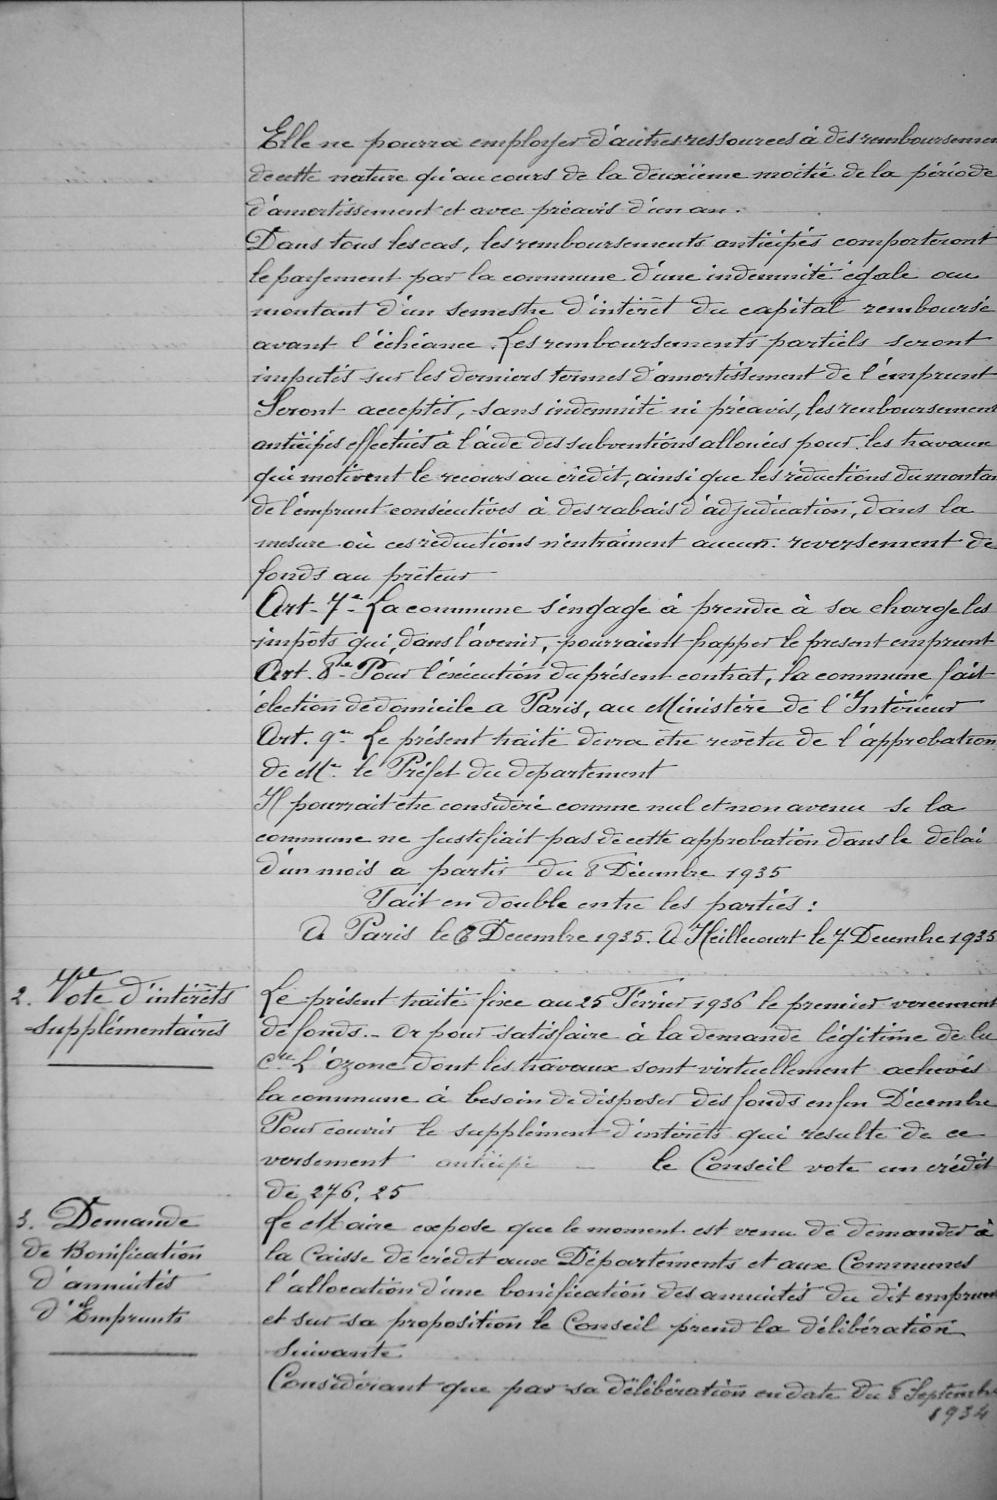 Elle ne pourra employer d'autres ressources à des remboursemen
de cette nature qu'au cours de la deuxième moitié de la période
d'amortissement et avec préavis d'un an.
Dans tous les cas, les remboursements anticipés comporteront
le payement par la commune d'une indemnité égale au
montant d'un semestre d'intérêt du capital remboursé
avant l'échéance. Les remboursements partiels seront
imputés sur les derniers termes d'amortissement de l'emprunt
Seront acceptés, sans indemnité ni préavis, les remboursement
anticipés effectués à l'aide des subventions allouées pour les travaux
qui motivent le recours au crédit, ainsi que les réductions du montan
de l'emprunt consécutives à des rabais d'adjudication, dans la
mesure où ces réductions n'entrainent aucun reversement de
fonds au prêteur
Art. 7e La commune s'engage à prendre à sa charge les
impôts qui, dans l'avenir, pourraient frapper le present emprunt
Art. 8he Pour l'exécution du présent contrat, la commune fait
élection de domicile a Paris, au Ministère de l'Intérieur
Art. 9e Le présent traité devra être revêtu de l'approbation
de Mr. le Préfet du departement
Il pourrait être considéré comme nul et non avenu si la
commune ne justifiait pas de cette approbation dans le délai
d'un mois a partir du 8 Décembre 1935
Fait en double entre les parties :
A Paris le 8 Decembre 1935. A Heillecourt le 7 Decembre 1935
2. Vote d'intérêts
supplémentaires
Le présent traité fixe au 25 Février 1936 le premier versement
de fonds. - Or pour satisfaire à la demande légitime de la
Cie L'Ozone dont les travaux sont virtuellement achevés
la commune à besoin de disposer des fonds enfin Décembre
Pour couvrir le supplément d'intérêts qui resulte de ce
versement anticipé - le Conseil vote un crédit
de 276,25
3. Demande
de Bonification
d'annuités
d'Emprunts
Le Maire expose que le moment est venu de demander à
la Caisse de crédit aux Départements et aux Communes
l'allocation d'une bonification des annuités du dit emprun
et sur sa proposition le Conseil prend la délibération
suivante
Considérant que par sa délibération en date du 8 Septembre
1934